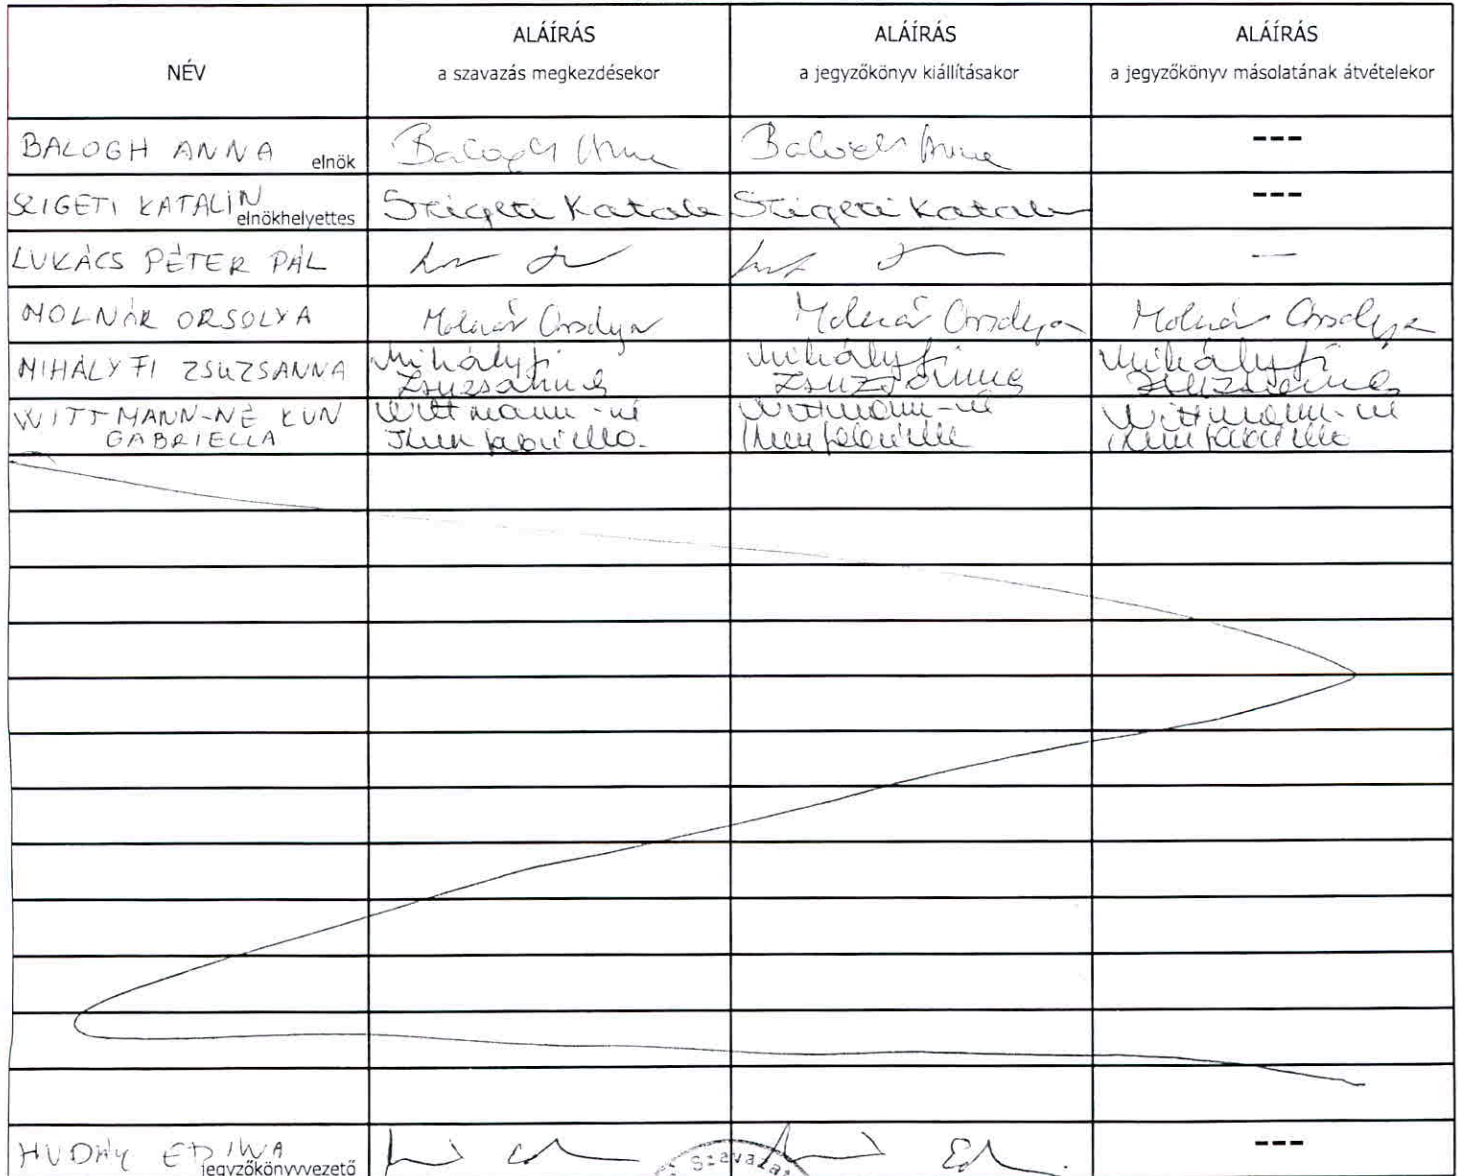 NÉV
ALÁÍRÁS
a szavazás megkezdésekor
ALÁÍRÁS
a jegyzőkönyv kiállításakor
ALÁÍRÁS
a jegyzőkönyv másolatának átvételekor
BALOGH ANNA elnök Balogh Anna Balogh Anna ---
SZIGETI KATALIN elnökhelyettes Szigeti Katalin Szigeti Katalin ---
LUKÁCS PÉTER PÁL —
MOLNÁR ORSOLYA Molnár Orsolya Molnár Orsolya Molnár Orsolya
MIHÁLYFI ZSUZSANNA Mihályfi Zsuzsanna Mihályfi Zsuzsanna Mihályfi Zsuzsanna
WITTMANN-NÉ KUN Wittmann-né Wittmann-né Wittmann-né
GABRIELLA Kun Gabriella Kun Gabriella Kun Gabriella
HUDÁK jegyzőkönyvvezető ---
Szavazat